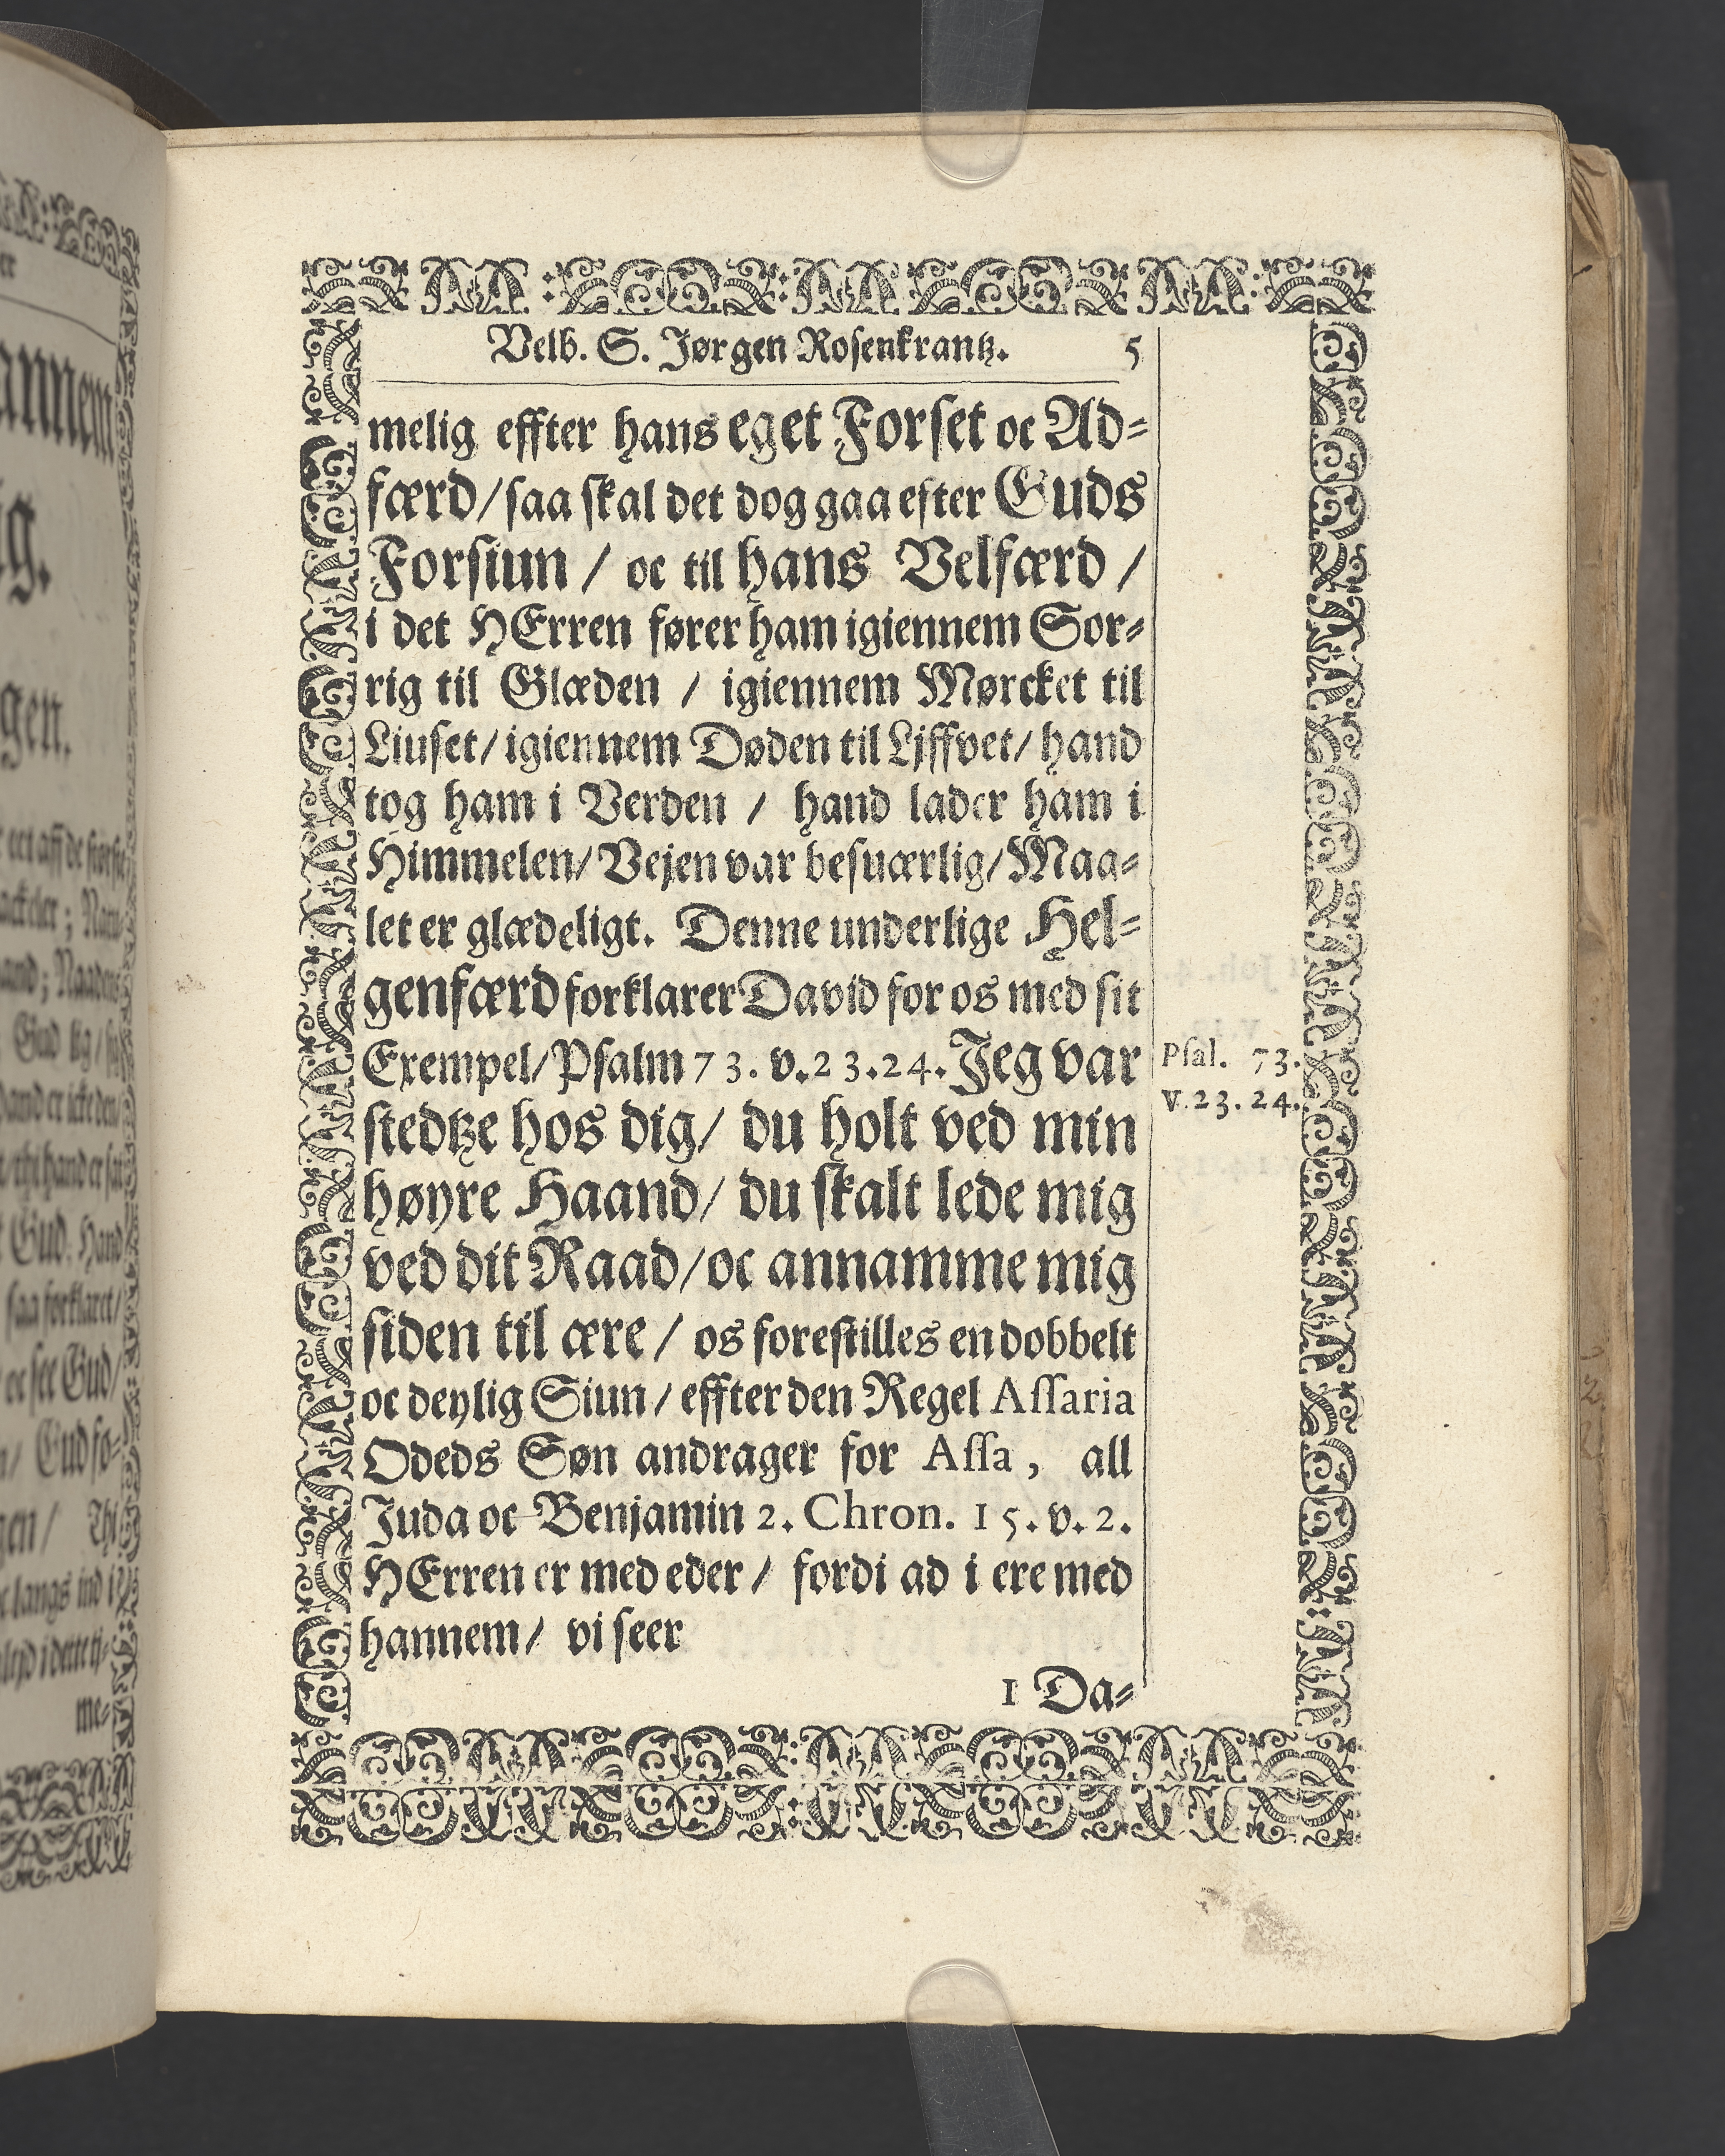 Velb. S. Jørgen Rosenkrantz. 5
melig effter hans eget Forset oc Ad-
færd / saa skal det dog gaa efter Guds
Forsiun / oc til hans Velfærd /
i det HErren fører ham igiennem Sor-
rig til Glæden / igiennem Mørcket til
Liuset / igiennem Døden til Ljffvet / hand
tog ham i Verden / hand lader ham i
Himmelen / Vejen var besuærlig / Maa-
let er glædeligt. Denne underlige Hel-
genfærd forklarer David for os med sit
Exempel / Psalm 73. v. 23. 24. Jeg var
stedtze hos dig / du holt ved min
høyre Haand / du skalt lede mig
ved dit Raad / oc annamme mig
siden til ære / os forestilles en dobbelt
oc deylig Siun / effter den Regel Assaria
Odeds Søn andrager for Assa, all
Juda oc Benjamin 2. Chron. 15. v. 2.
HErren er med eder / fordi ad i ere med
hannem / vi seer
1 Da-
Psal. 73.
V. 23. 24.